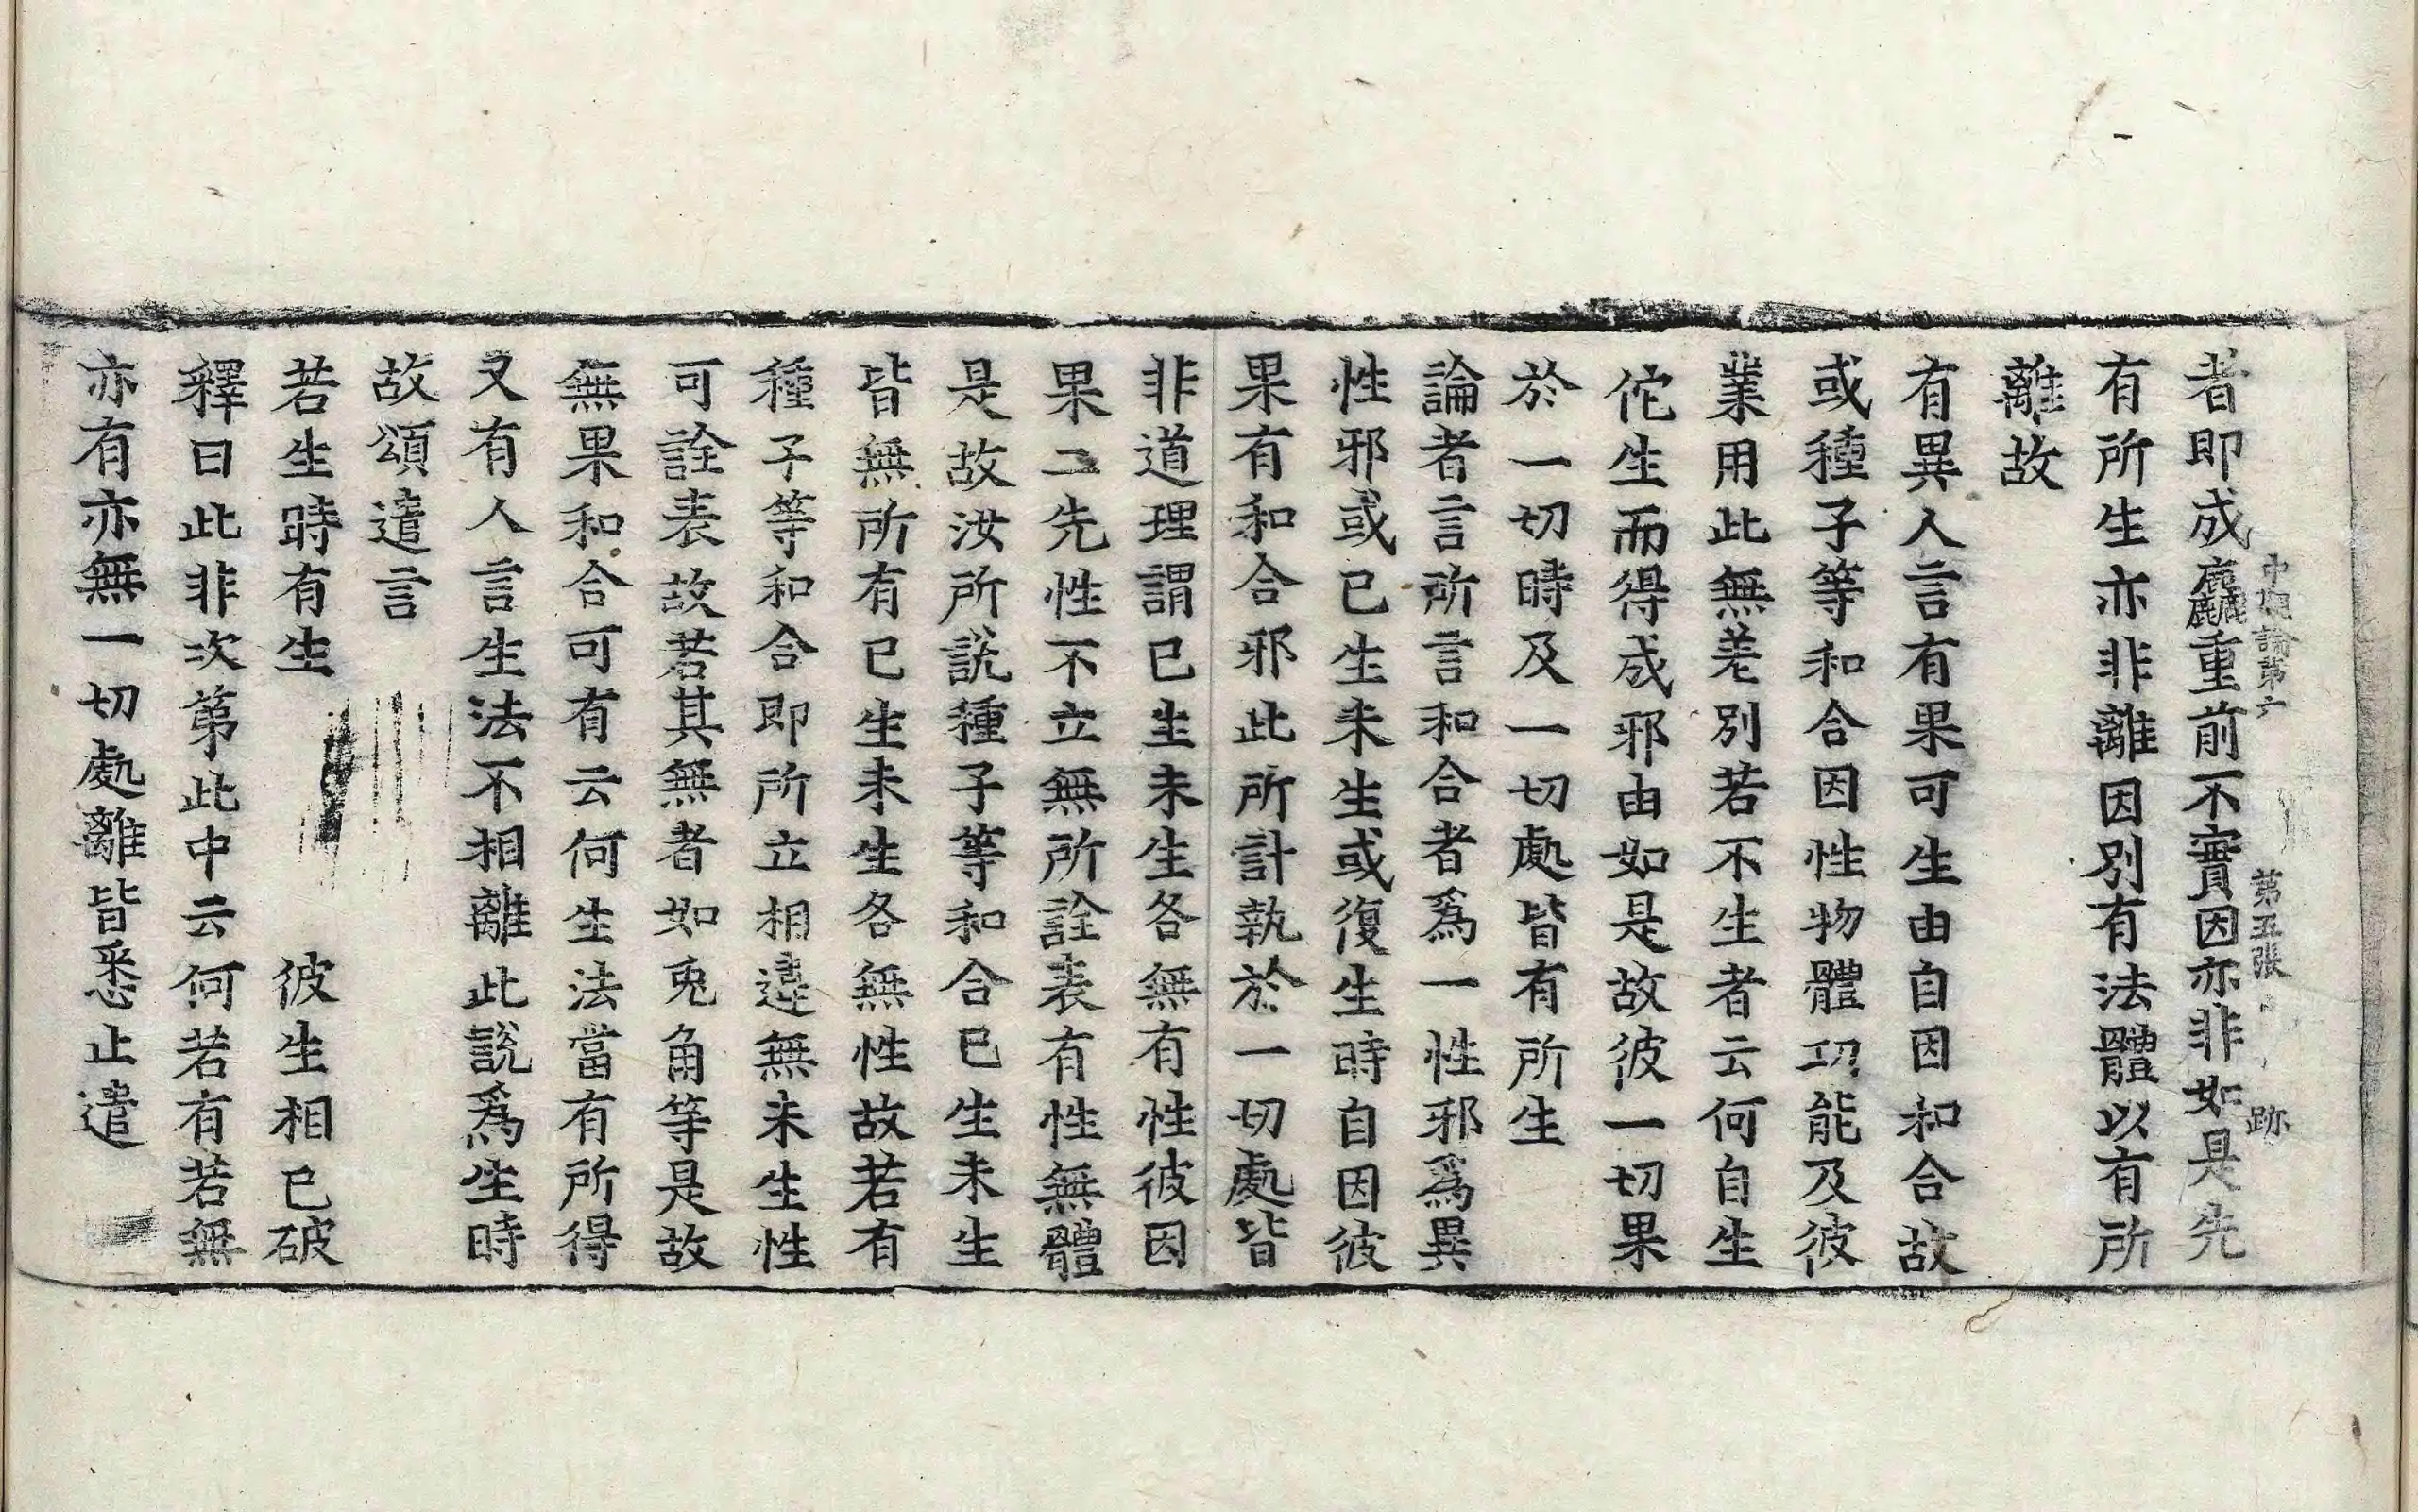 中觀論第六 第五張 跡
者即成麤重前不實因亦非如是先
有所生亦非離因別有法體以有所
離故
有異人言有果可生由自因和合故
或種子等和合因性物體功能及彼
業用此無差別若不生者云何自生
佗生而得成邪由如是故彼一切果
於一切時及一切處皆有所生
論者言所言和合者爲一性邪爲異
性邪或已生未生或復生時自因彼
果有和合邪此所計執於一切處皆
非道理謂已生未生各無有性彼因
果二先性不立無所詮表有性無體
是故汝所說種子等和合已生未生
皆無所有已生未生各無性故若有
種子等和合即所立相違無未生性
可詮表故若其無者如兎角等是故
無果和合可有云何生法當有所得
又有人言生法不相離此說爲生時
故頌遣言
若生時有生 彼生相已破
釋曰此非次第此中云何若有若無
亦有亦無一切處離皆悉止遣